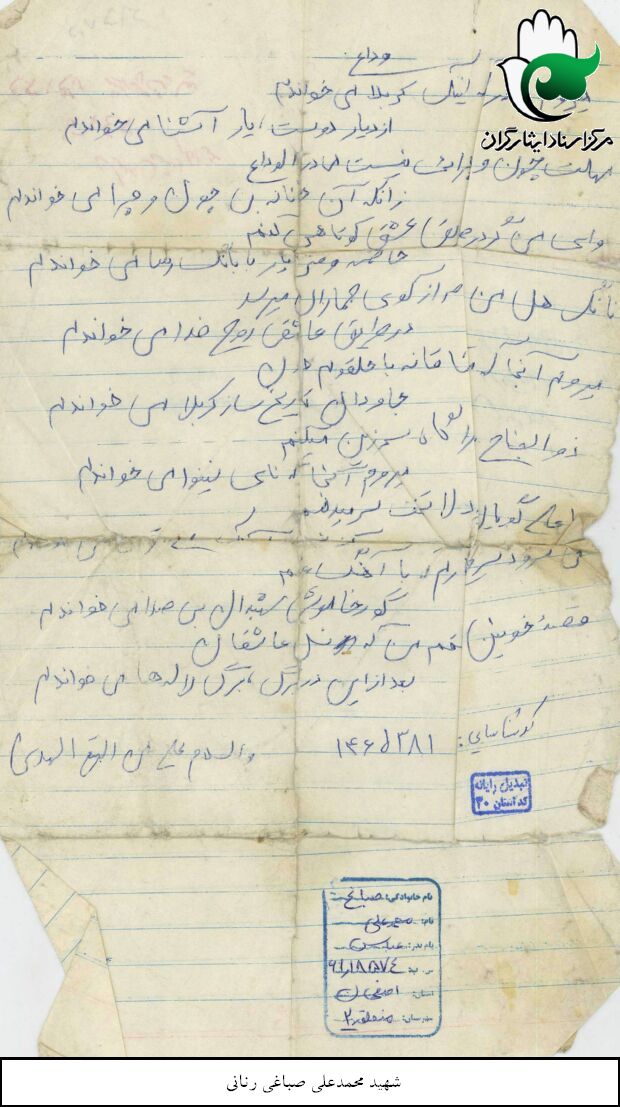 مرکز اسناد ایثارگران
وداع
میروم اینک کربلا می خواندم
از دیار دوست، یار آشنا می خواندم
مهلت چون و چرایم نیست مادر الوداع
زانکه آن جانانه بی چون و چرا می خواندم
وای من گر در طریق عشق کوتاهی کنم
خاصه وقتی یار با بانگ رسا می خواندم
بانگ هل من از کوی جماران میرسد
در طریق عاشقی روح خدا می خواندم
میروم آنجا که مشتاقانه با حلقوم
جاودان تاریخ ساز کربلا می خواندم
ذوالجناح را کنون زین میکنم
میروم آنجا که نای نینوا می خواندم
لا تخف سر میدهد
با آهنگ
گور خاموش شهیدان بی صدا می خواندم
قصهٔ خونین غم من که نسل عاشقان
بعد از این در برگ، برگ لاله ها می خواندم
کد شناسایی: ۱۴۶۵۳۸۱
والسلام علی من اتبع الهدی
تبدیل رایانه
کد استان ۳۰
نام خانوادگی: صباغی
نام: محمدعلی
نام پدر: عباس
استان: اصفهان
شهرستان: منطقه ۲
شهید محمدعلی صباغی رنانی